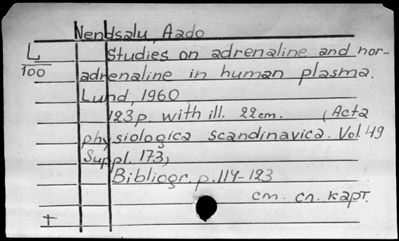 Nendsalu, Aado
L
100
Studies on adrenaline and nor-
adrenaline in human plasma.
Lund, 1960
123 p. with ill. 22cm. (Acta
physiologica scandinavica. Vol. 49
Suppl. 173)
Bibliogr. p. 114-123
см. сл. карт.
+